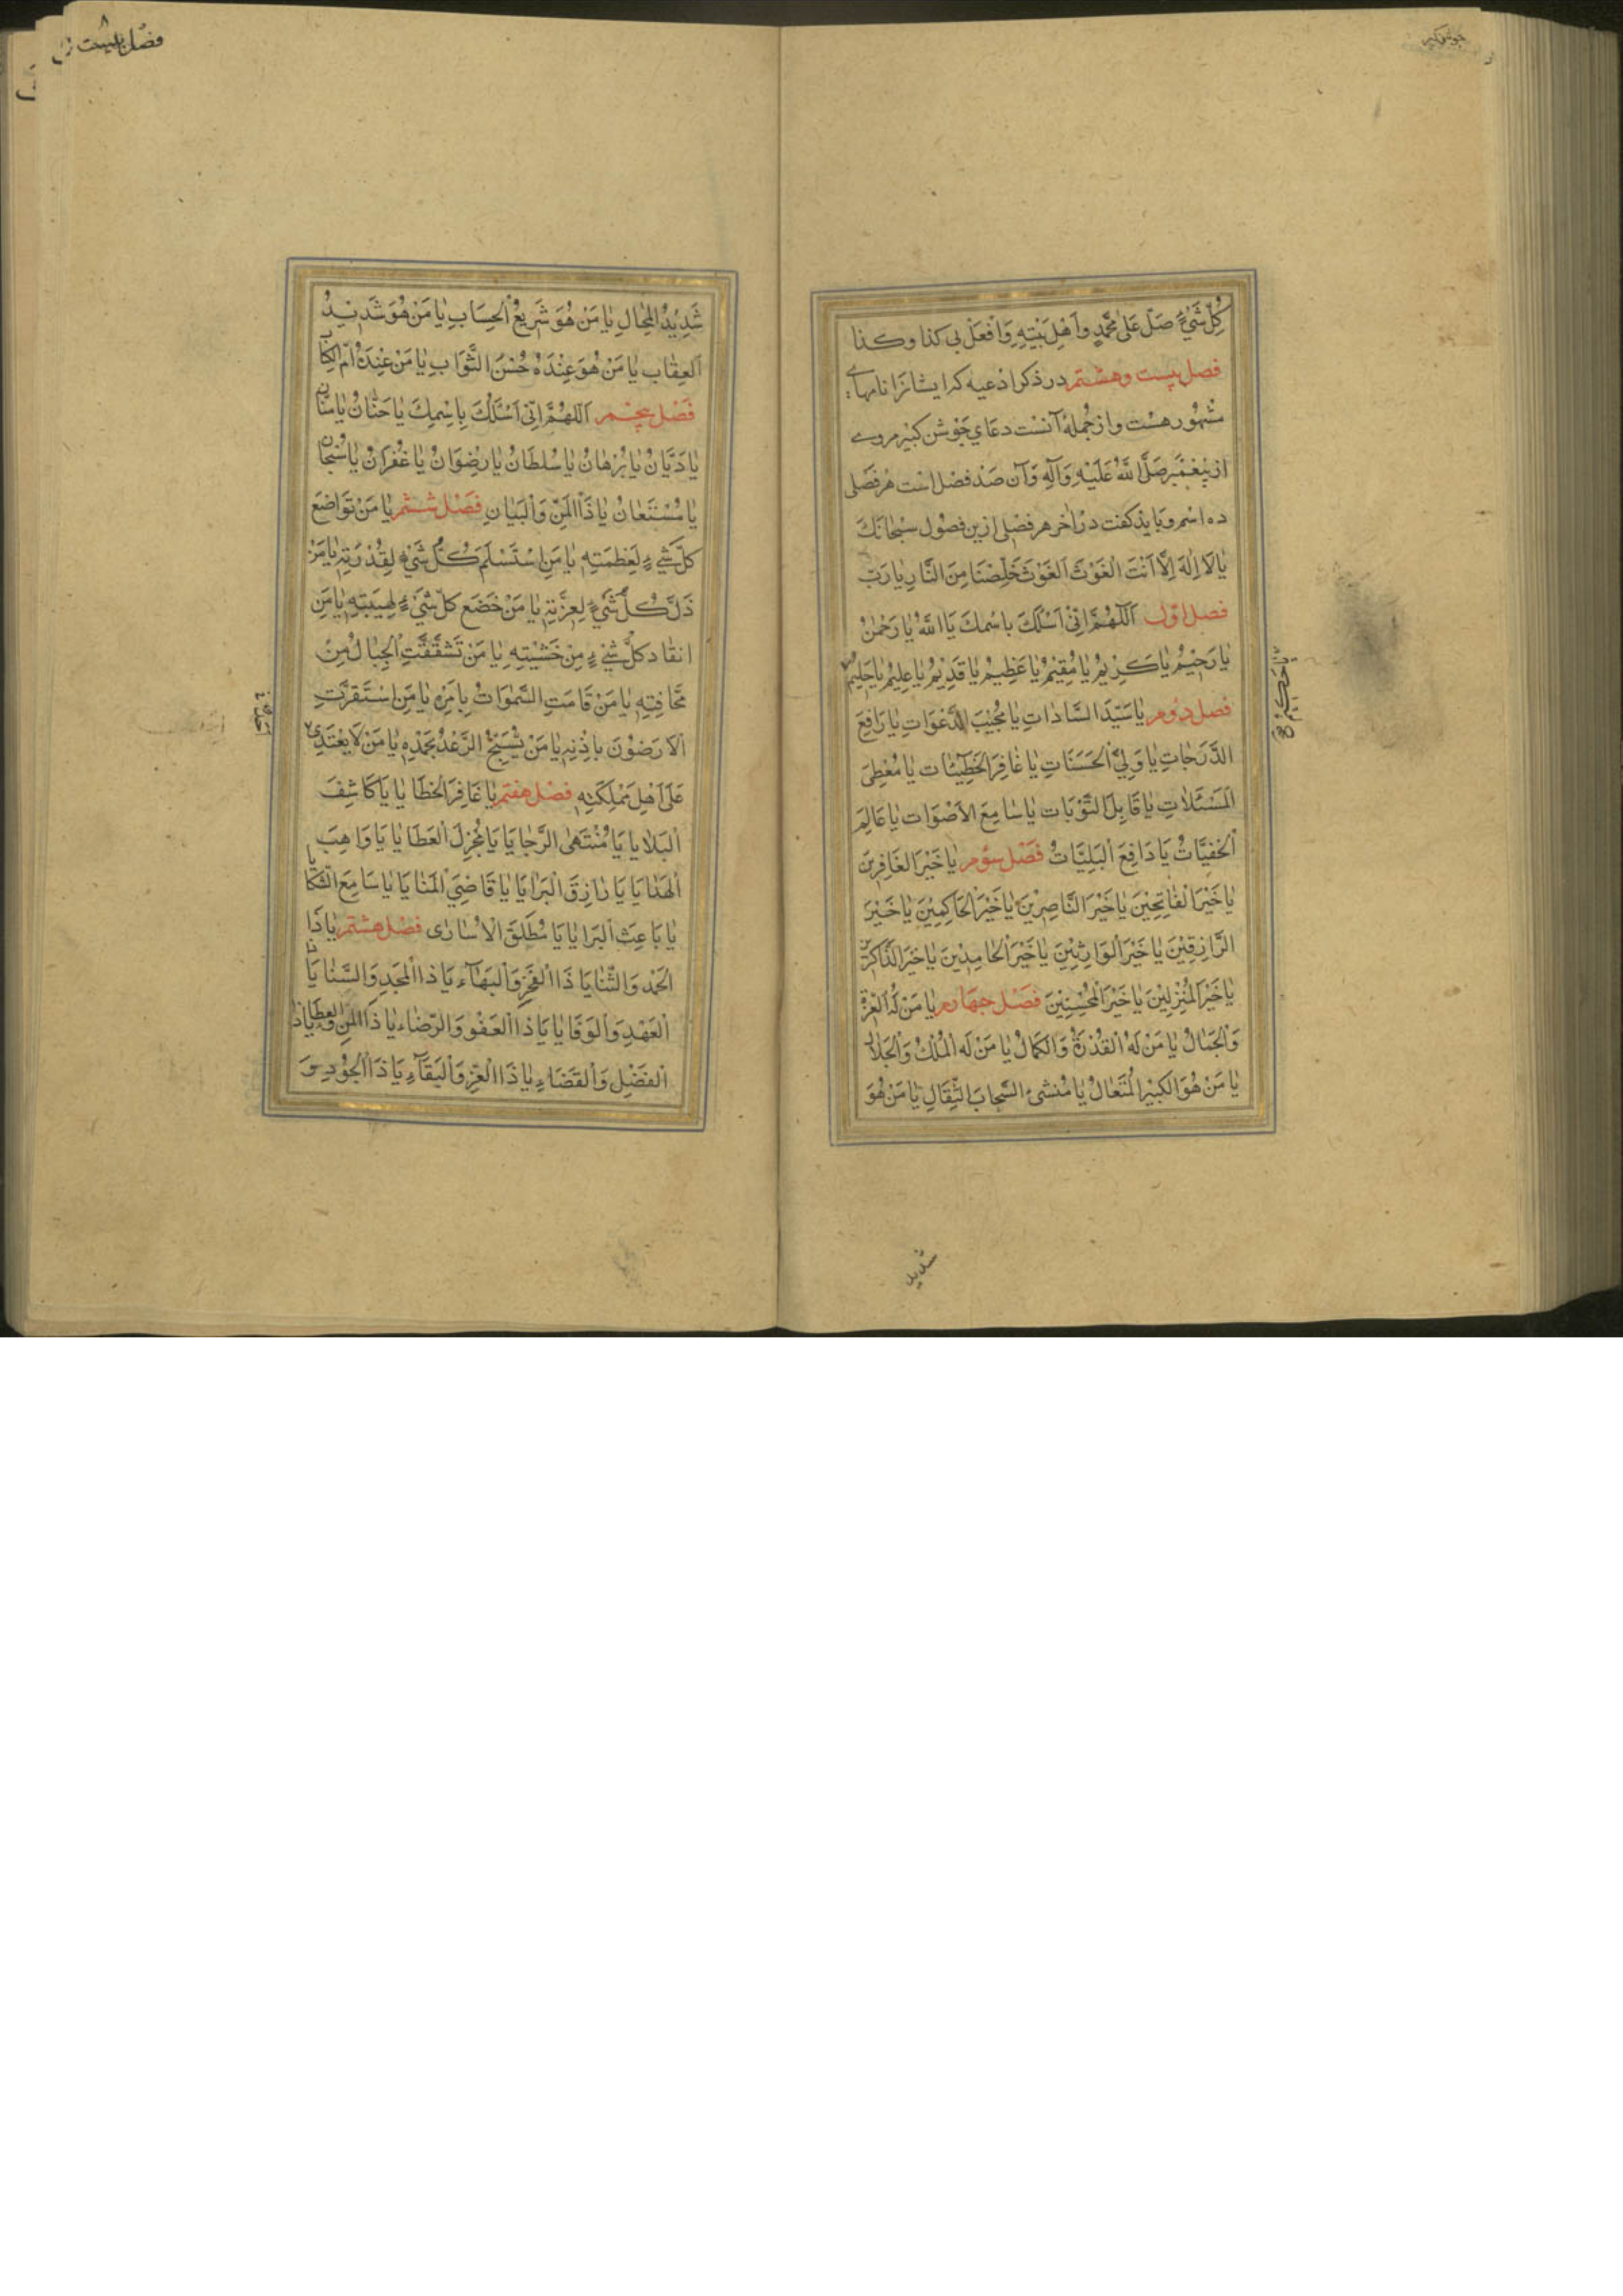 جوشن کبیر
کُلِّ شَیْءٍ صَلِّ عَلٰی مُحَمَّدٍ وَاَهْلِ بَیْتِهِ وَافْعَلْ بی کذا وکذا
فصل بیست وهشتم در ذکر ادعیه که ایشانرا نامهای
مشهور هست واز جمله آنست دعای جوشن کبیر مروی
از پیغمبر صَلَّی اللهُ عَلَیْهِ وَآلِهِ وآن صد فصل است هر فصلی
ده اسم وباید گفت در آخر هر فصلی ازین فصول سُبْحانَكَ
یا لَا اِلٰهَ اِلَّا اَنْتَ الْغَوْثَ اَلْغَوْثَ خَلِّصْنَا مِنَ النَّارِ یا رَبِّ
فصل اوّل اَللّٰهُمَّ اِنّی اَسْئَلُكَ بِاسْمِكَ یَا اَللّٰهُ یا رَحْمٰنُ
یا رَحیمُ یا کَریمُ یا مُقیمُ یا عَظیمُ یا قَدیمُ یا عَلیمُ یا حَلیمُ
یا حکیم
فصل دوم یا سَیِّدَ السَّاداتِ یا مُجیبَ الدَّعَوَاتِ یا رَافِعَ
الدَّرَجاتِ یا وَلِیَّ الْحَسَنَاتِ یا غافِرَ الْخَطِیئٰاتِ یا مُعْطِیَ
الْمَسْئَلاتِ یا قَابِلَ التَّوْبَاتِ یا سامِعَ الْاَصْوَاتِ یا عَالِمَ
الْخَفِیَّاتِ یَا دَافِعَ الْبَلِیَّاتِ فَصْل سؤم یا خَیْرَ الغَافِرینَ
یا خَیْرَ الْفاتِحینَ یا خَیْرَ النَّاصِرینَ یا خَیْرَ الْحَاکِمینَ یا خَیْرَ
الرَّازِقینَ یا خَیْرَ الْوَارِثینَ یا خَیْرَ الْحامِدینَ یا خَیْرَ الذَّاکِرینَ
یا خَیْرَ الْمُنْزِلینَ یا خَیْرَ الْمُحْسِنینَ فصل چهارم یا مَنْ لَهُ الْعِزَّةُ
وَالْجَمالُ یا مَنْ لَهُ الْقُدْرَةُ وَالْکَمالُ یا مَنْ لَهُ الْمُلْكُ وَالْجَلالُ
یا مَنْ هُوَ الْکَبیرُ الْمُتَعالُ یا مُنْشِیءَ السَّحابِ الثِّقَالِ یا مَنْ هُوَ
شدید
شَدیدُ الْمِحالِ یا مَنْ هُوَ سَریعُ الْحِسَابِ یا مَنْ هُوَ شَدیدُ
الْعِقٰابِ یا مَنْ هُوَ عِنْدَهُ حُسْنُ الثَّوَابِ یا مَنْ عِنْدَهُ اُمُّ الْکِتاب
فَصْل پنجم اَللّٰهُمَّ اِنّی اَسْئَلُكَ بِاسْمِكَ یا حَنّانُ یا مَنّانُ
یا دَیَّانُ یا بُرْهانُ یا سُلْطَانُ یا رِضْوَانُ یا غُفْرَانُ یا سُبْحانُ
یا مُسْتَعانُ یا ذَا الْمَنِّ وَالْبَیَانِ فَصْل ششم یا مَنْ تَوَاضَعَ
کُلُّ شَیْءٍ لِعَظَمَتِهِ یا مَنِ اسْتَسْلَمَ کُلُّ شَیْءٍ لِقُدْرَتِهِ یا مَنْ
ذَلَّ کُلُّ شَیْءٍ لِعِزَّتِهِ یا مَنْ خَضَعَ کُلُّ شَیْءٍ لِهَیْبَتِهِ یا مَنِ
انقاد کُلُّ شَیْءٍ مِنْ خَشْیَتِهِ یا مَنْ تَشَقَّقَتِ الْجِبَالُ مِنْ
مَخافَتِهِ یا مَنْ قامَتِ السَّمٰوَاتُ بِاَمْرِهِ یا مَنِ اسْتَقَرَّتِ
الْاَرَضُونَ بِاِذْنِهِ یا مَنْ یُسَبِّحُ الرَّعْدُ بِحَمْدِهِ یا مَنْ لَا یَعْتَدی
عَلٰی اَهْلِ مَمْلِکَتِهِ فصل هفتم یا غَافِرَ الْخَطَایا یا کَاشِفَ
الْبَلایا یا مُنْتَهَی الرَّجایَا یَا مُجْزِلَ الْعَطَایا یَا وَاهِبَ
الْهَدایَا یَا رازِقَ الْبَرایَا یا قَاضِیَ الْمَنایَا یا سَامِعَ الشَّکایا
یا بَاعِثَ الْبَرایا یَا مُطْلِقَ الْاُسارٰی فصل هشتم یا ذَا
الْحَمْدِ وَالثَّنایَا ذَا الْفَخْرِ وَالْبَهآءِ یَا ذَا الْمَجْدِ وَالسَّنا یَا ذَا
الْعَهْدِ وَالْوَفَا یا ذَا الْعَفْوِ وَالرِّضاءِ یا ذَا الْمَنِّ وَالْعَطَا یا ذَا
الْفَضْلِ وَالْقَضاءِ یا ذَا الْعِزِّ وَالْبَقَآءِ یَا ذَا الْجُودِ وَ